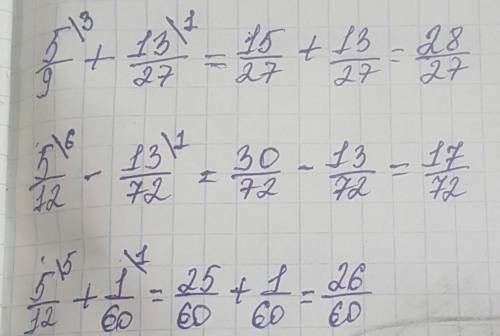 5/9\3 + 13/27\1 = 15/27 + 13/27 = 28/27
5/12\6 - 13/72\1 = 30/72 - 13/72 = 17/72
5/12\5 + 1/60\1 = 25/60 + 1/60 = 26/60